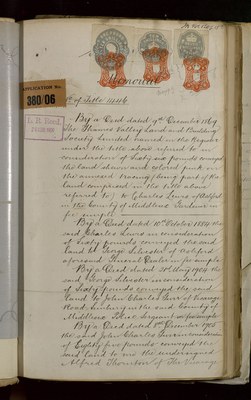 APPLICATION No.
380/06
Memorial
No. of Title 4446
By a Deed dated 9th December 1869
The Thames Valley Land and Building
Society Limited named on the Register
under the title above referred to in
consideration of Sixty six pounds conveyed
the land shewn and colored pink on
the annexed tracing (being part of the
land comprised in the title above
referred to) to Charles of Ashford
in the County of Middlesex
fee simple
By a Deed dated 10th October 1884 the
said Charles in consideration
of Sixty pounds conveyed the said
land to George Silvester of Ashford
aforesaid in fee simple
By a Deed dated 31st May 1904 the
said George Silvester in consideration
of Sixty pounds conveyed the said
land to John Charles of
Road in the said County of
Middlesex in fee simple
By a Deed dated December 1905
the said John Charles in consideration
of Eighty five pounds conveyed the
said land to me the undersigned
Alfred Thornton of The